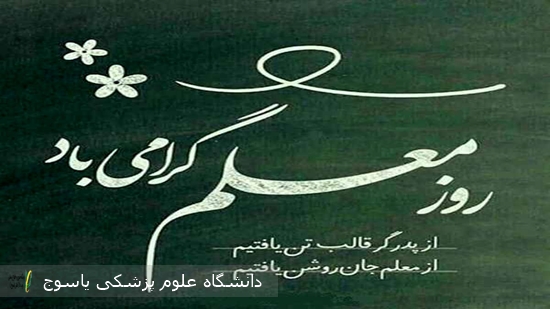 روز معلم گرامی باد
از پدر گر قالب تن یافتیم
از معلم جان روشن یافتیم
دانشگاه علوم پزشکی یاسوج